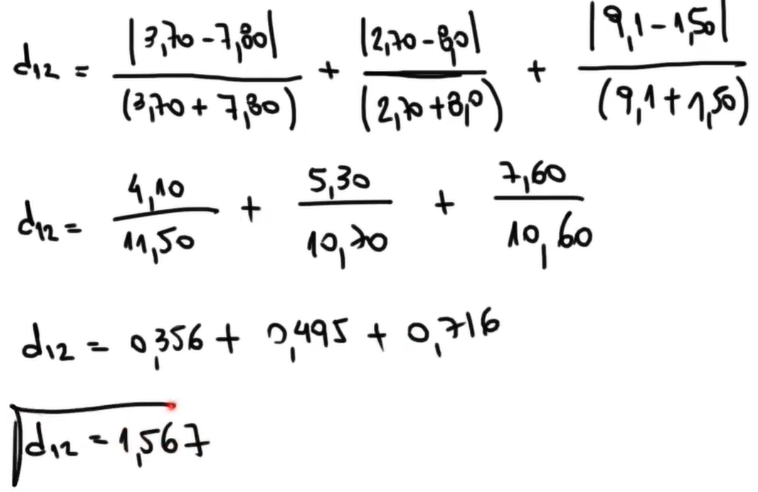 d12 = |3,70 - 7,80| / (3,70 + 7,80) + |2,70 - 8,0| / (2,70 + 8,0) + |9,1 - 1,50| / (9,1 + 1,50)
d12 = 4,10 / 11,50 + 5,30 / 10,70 + 7,60 / 10,60
d12 = 0,356 + 0,495 + 0,716
d12 = 1,567